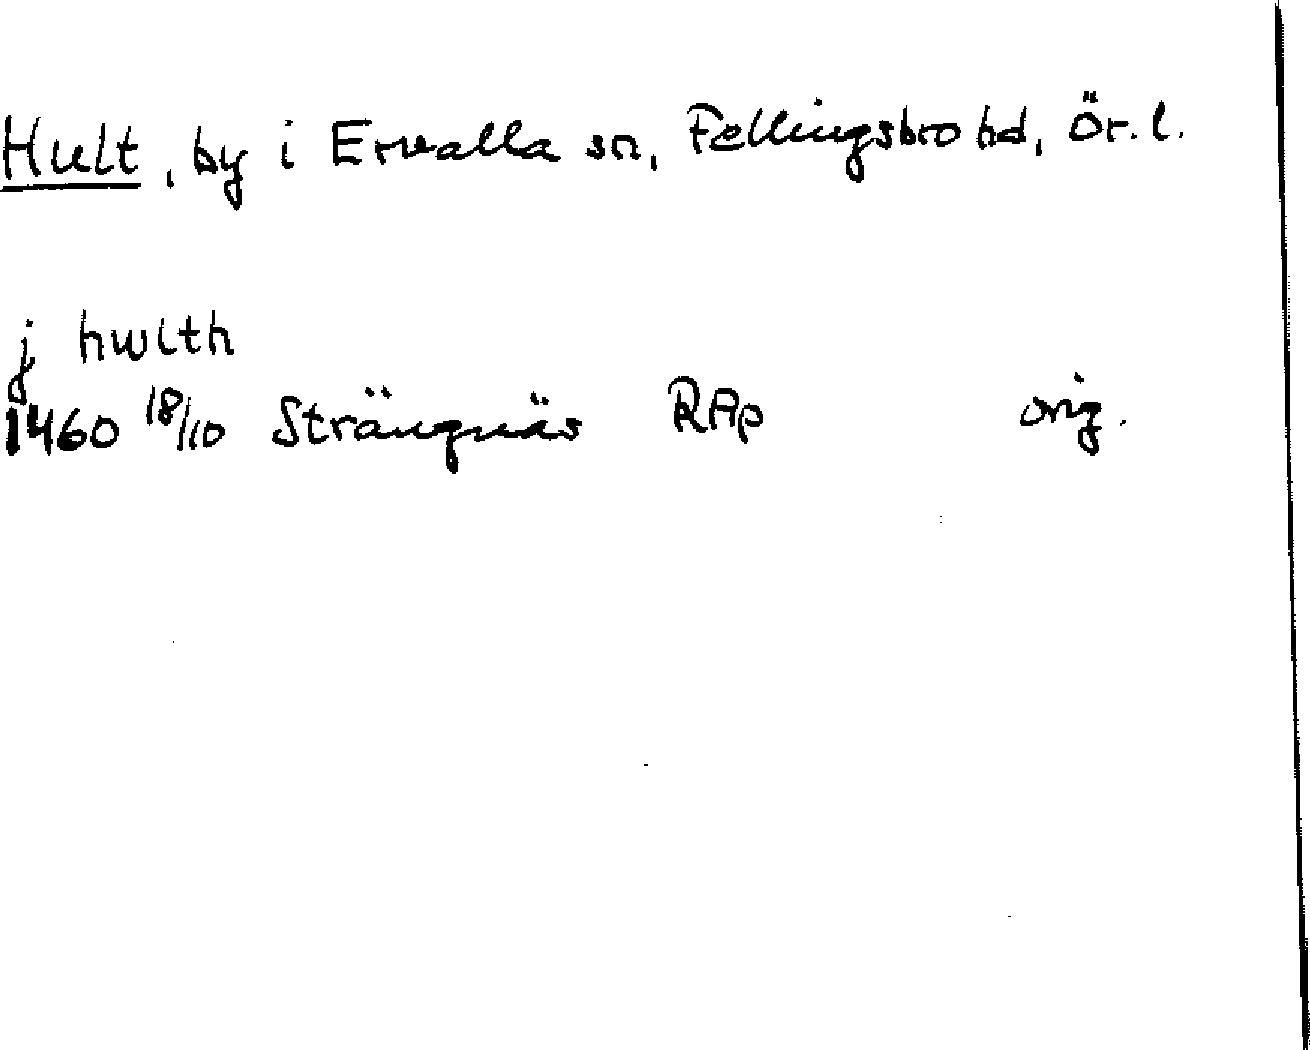 Hult, by i Ervalla sn, Fellingsbro hd, Ör. l.
j hwlth
1460 18/10 Strängnäs RAp orig.